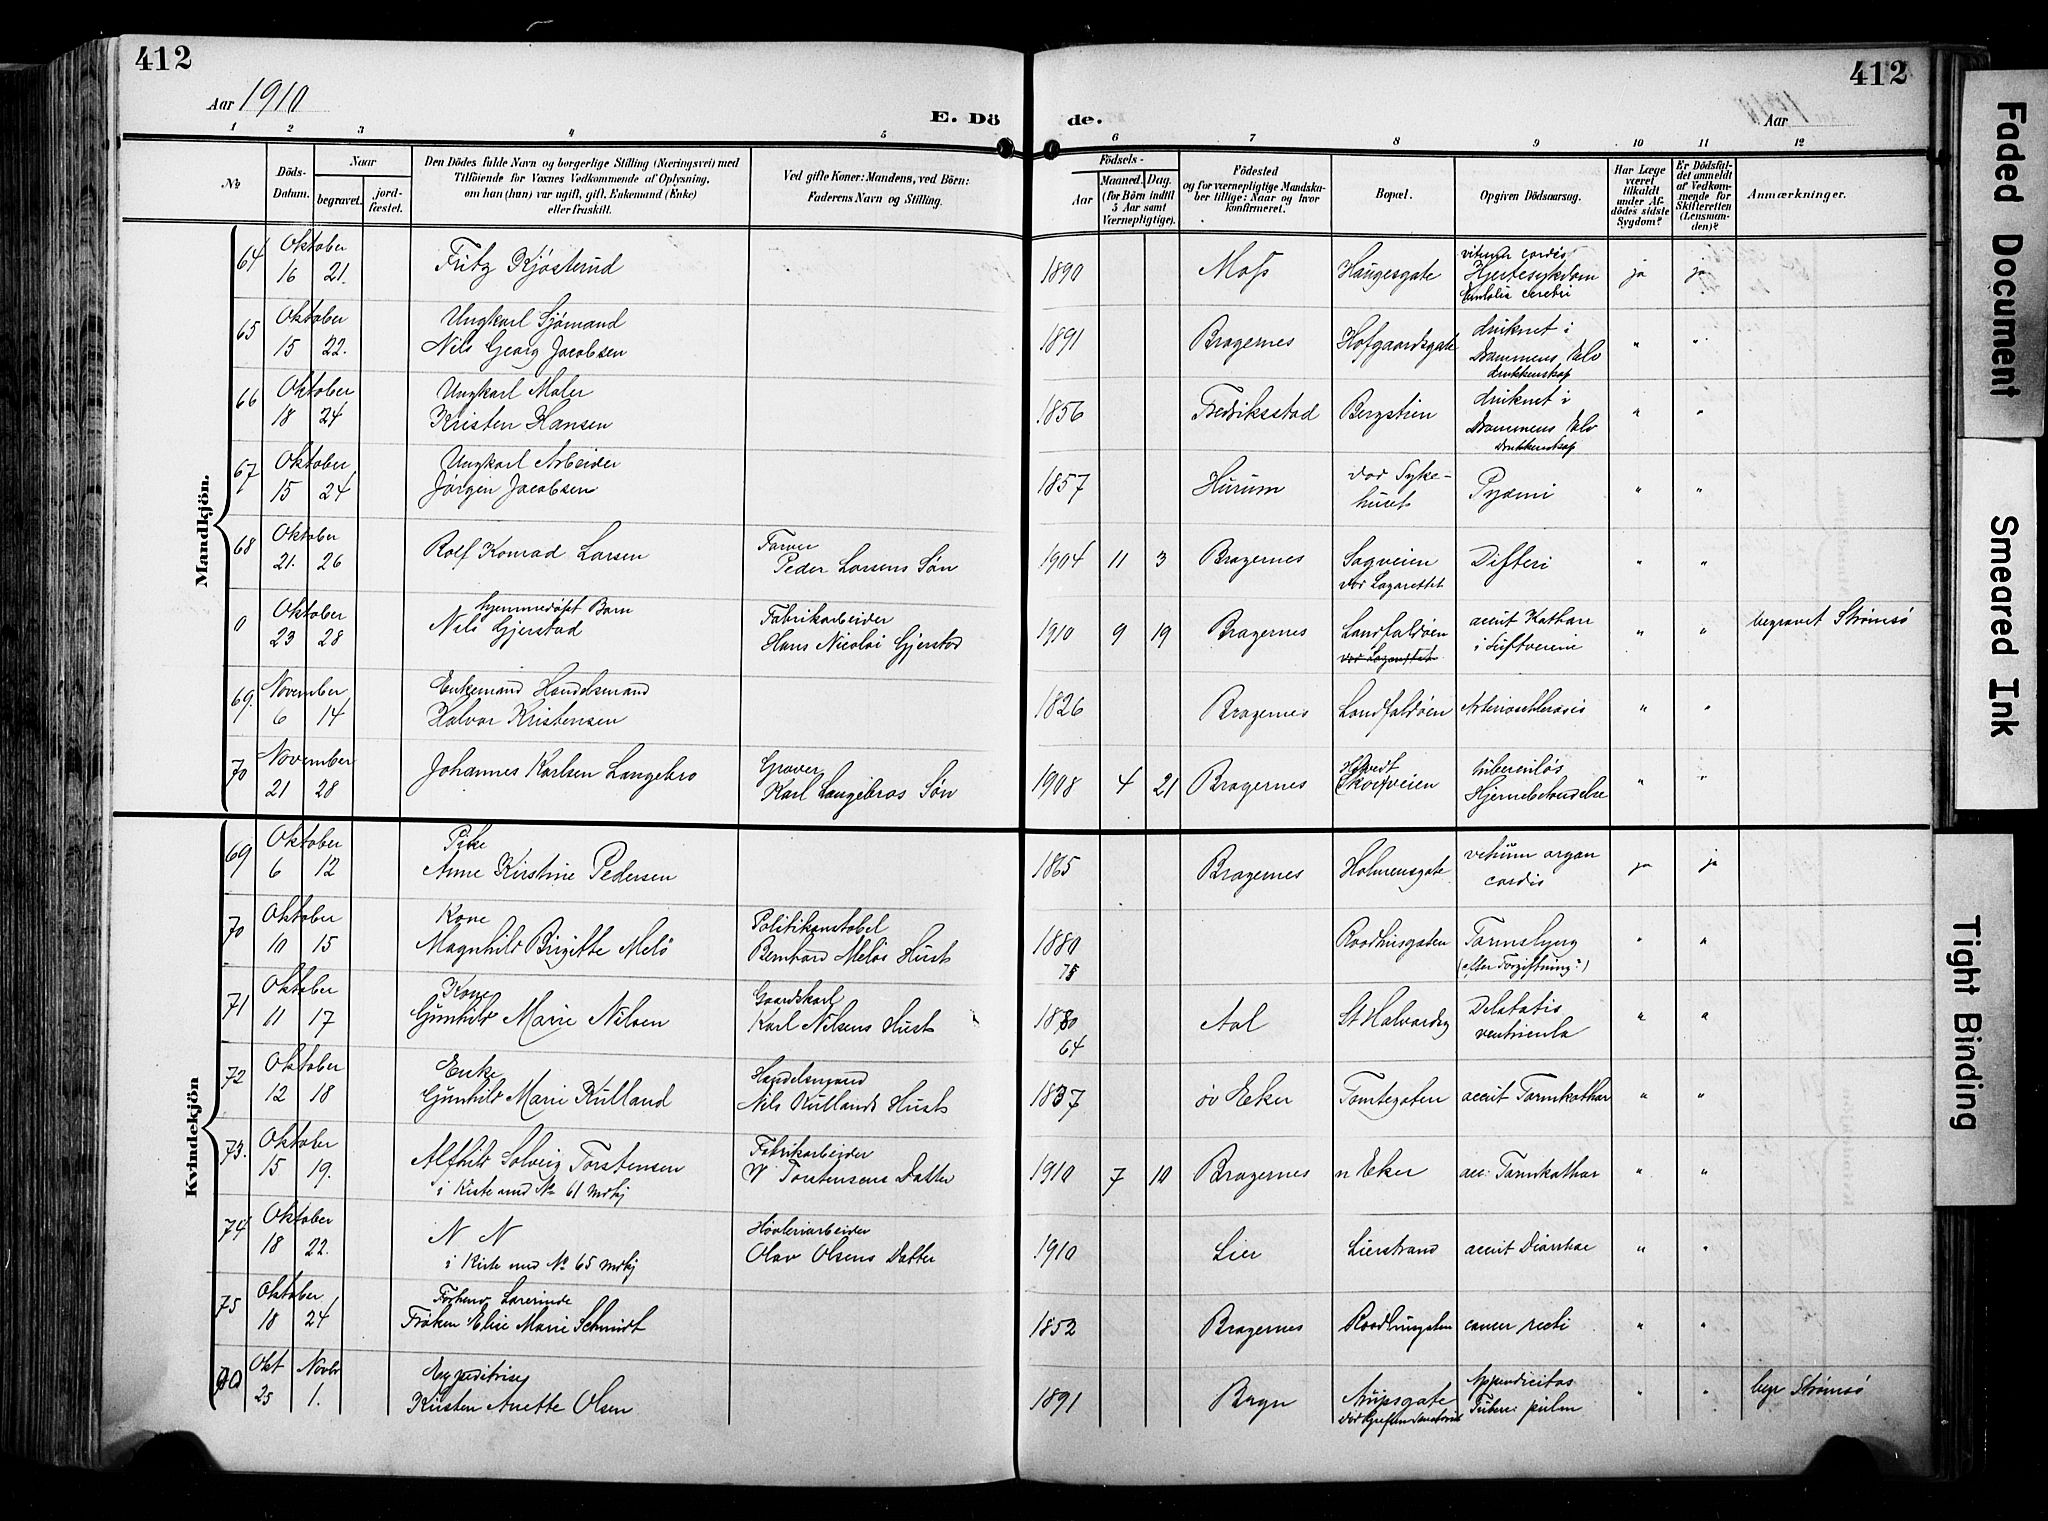 412
412
Aar 1910
E. Dö
de.
Aar
1 2 3 4 5 6 7 8 9 10 11 12
No
Döds-Datum.
Naar
begravet.
jordfæstet.
Den Dödes fulde Navn og borgerlige Stilling (Næringsvei) med
Tilföiende for Voxnes Vedkommende af Oplysning,
om han (hun) var ugift, gift, Enkemand (Enke)
eller fraskilt.
Ved gifte Koner: Mandens, ved Börn:
Faderens Navn og Stilling.
Födsels-
Aar
Maaned. Dag.
(for Börn indtil
5 Aar samt
Værnepligtige).
Födested
og for værnepligtige Mandskaber tillige: Naar og hvor
konfirmeret.
Bopæl.
Opgiven Dödsaarsag.
Har Læge
været
tilkaldt
under Afdödes sidste
Sygdom?
Er Dödsfaldet anmeldt
af Vedkommende for
Skifteretten
(Lensmanden)?
Anmærkninger.
Mandkjön.
64 Oktober 16 21. Fritz Kjösterud 1890 Moss Haugesgate vitium cordis Hjertesykdom cerebri ja ja
65 Oktober 15 22. Ungkarl Sjømand Nils Georg Jacobsen 1891 Bragernes Hofgaardsgate druknet i Drammens Elv drukkenskap " "
66 Oktober 18 24 Ungkarl Maler Kristen Hansen 1856 Fredriksstad Bergstien druknet i Drammens Elv Drukkenskap " "
67 Oktober 15 24 Ungkarl Arbeider Jørgen Jacobsen 1857 Hurum vor Sykehuset Pyæmi " "
68 Oktober 21. 26 Rolf Konrad Larsen Farver Peder Larsens Søn 1904 11 3 Bragernes Sagveien vor Lazarettet Difteri " "
0 Oktober 23 28 hjemmedøpt Barn Nils Gjerstad Fabrikarbeider Hans Nicolai Gjerstad 1910 9 19 Bragernes Landfaldøen acut Katharr i Luftveiene " " begravet Strømsö
69. November 6 14 Enkemand Handelsmand Halvor Kristensen 1826 Bragernes Landfaldøen Arteriosklerosis " "
70 November 21 28 Johannes Karlsen Langebro Graver Karl Langebros Søn 1908 4 21 Bragernes Hotvedt Skotveien tuberculøs Hjernebetændelse " "
Kvindekjön
69 Oktober 6 12 Pike Anne Kirstine Pedersen 1865 Bragernes Holmensgate vitium organ cordis ja ja
70 Oktober 10 15 Kone Magnhild Birgitte Melö Politikonstabel Bernhard Melös Hust 1880 75 Raadhusgaten Tarmslyng (efter Forgiftning?) " "
71 Oktober 11 17 Kone Gunhild Marie Nilsen Gaardskarl Karl Nilsens Hust 1880 64 Aal St Halvardsg Delatatis ventricula " "
72 Oktober 12 18 Enke Gunhild Marie Rulland Handelsmand Nils Rullands Hust 1837 öv Eker Tomtegaten acut Tarmkathar " "
73. Oktober 15 19. Alfhild Solveig Torstensen i Kiste med No 61 Mdkj Fabrikarbeider W Torstensens Datter 1910 7 10 Bragernes n Eker acc: Tarmkathar " "
74 Oktober 18 22. N N i Kiste med No 65 Mdkj Høvleriarbeider Olav Olsens Datter 1910 Lier Lierstrand acut Diarrhae " "
75 Oktober 18 24 Forhenv Lærerinde Frøken Elise Marie Schmidt 1852 Bragernes Raadhusgaten cancer recti " "
Okt 25 Novbr 1. Expeditrise Kirsten Anette Olsen 1891 Bragn Arupsgate Appendicitas Tuberc pulm " " begr Strømsö
Faded Document
Smeared Ink
Tight Binding